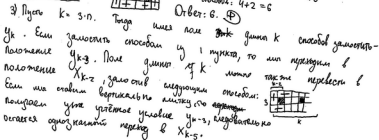 4+2=6
Ответ: 6.
3) Пусть k = 3·n. Тогда имея поле длины k способов замостить -
y_k. Если замостить способом из 1 пункта, то мы переходим в
положение y_{k-3}. Поле длины k можно также перевести в
положение x_{k-2}, замостив следующим способом:
Если мы ставим вертикально плитку, то
получаем уже учтённое условие y_{k-3}, следовательно
остаётся однозначный переход в x_{k-5}.
3
k